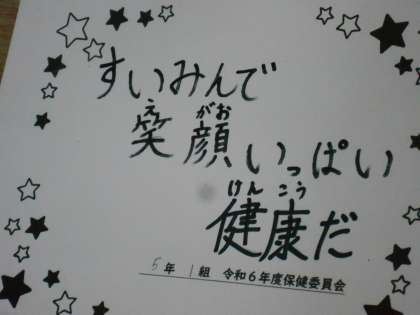 すいみんで
笑顔いっぱい
健康だ
5年 1組 令和6年度保健委員会